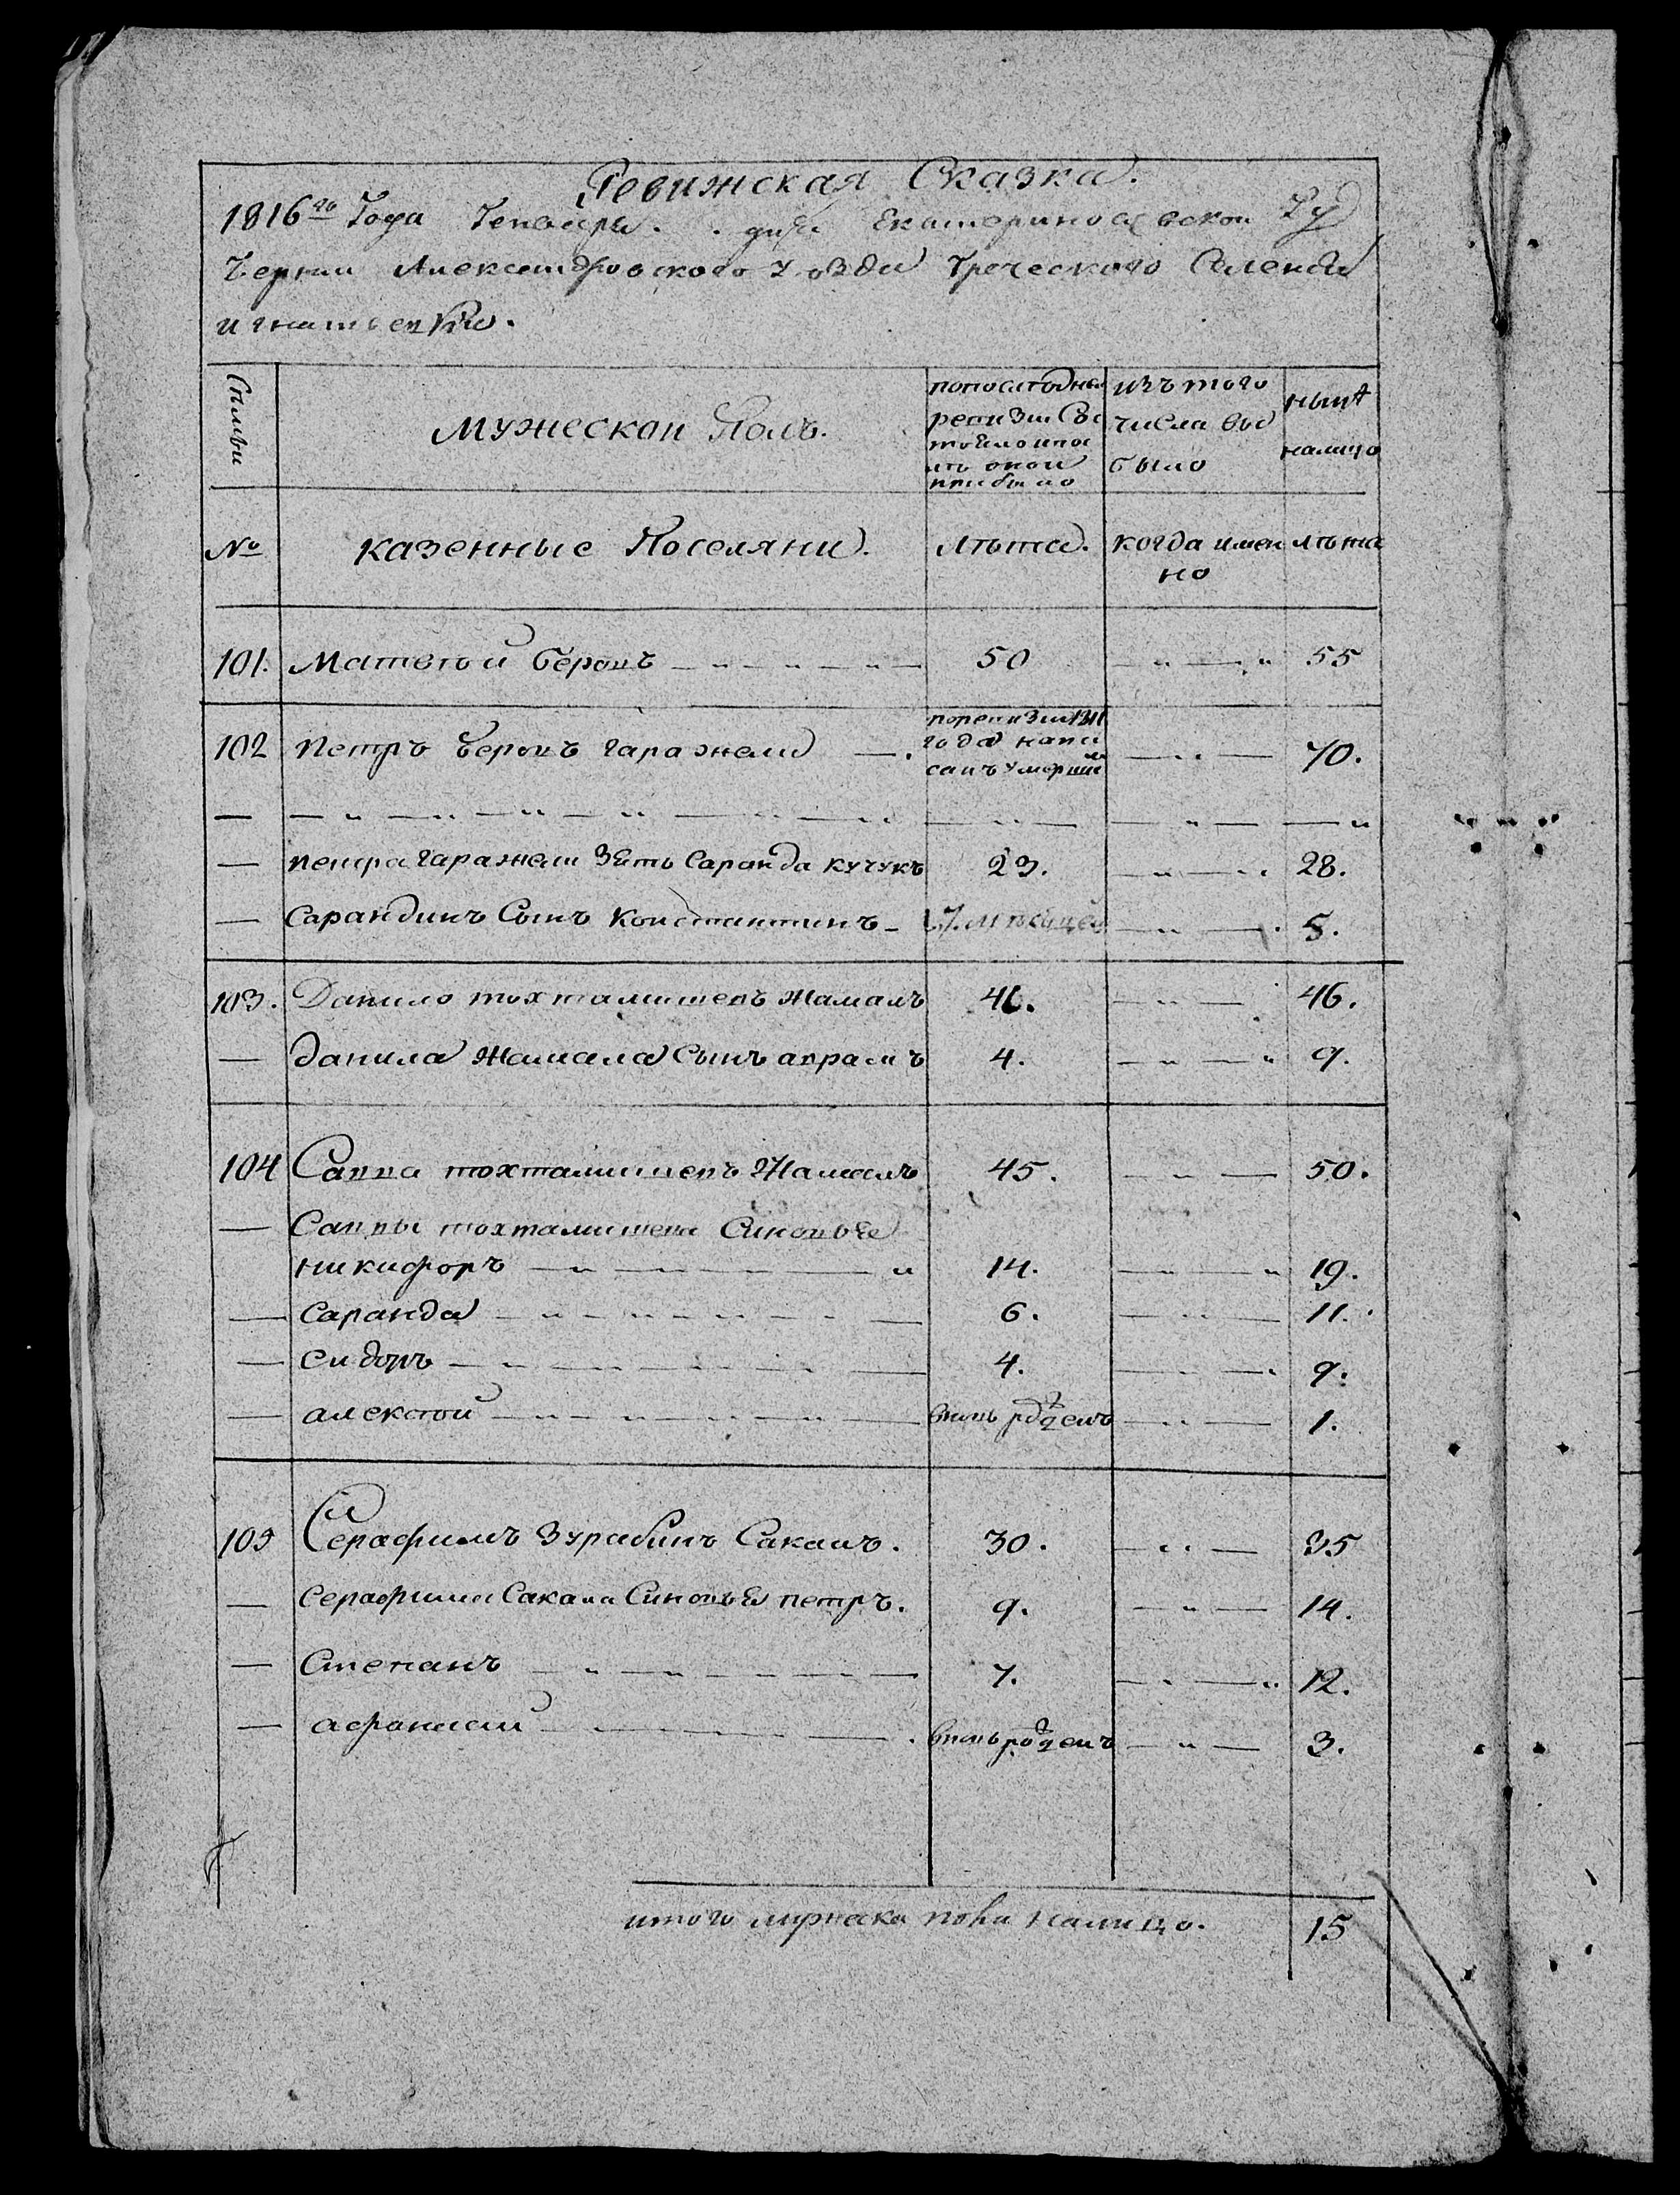 Ревижская Сказка.
1816го Года Генваря . . дня Екатеринославской Гу
берніи Александровскаго уѣзда Греческаго Селенія
игнатьевки.
Семьи
мужескои Полъ.
попоследней ревизіи Состояло ипослѣ оной прибыло
изъ того числа выбыло
нынѣ налицо
№ казенные Поселяни. лѣта. когда имен лѣта
но
101. Матвѣй беровъ 50 55
102 петръ беровъ гаражели поревизіи 1811 года написанъ умершим 70.
— петра гаражели зять Саранда кучукъ 23. 28.
— Сарандинъ Сынъ Константинъ 7. мѣсяцев 5.
103. Данило тохтамишевъ Жамалъ 41. 46.
— данила Жамала Сынъ аврамъ 4. 9.
104 Савва тохтамишевъ Жамалъ 45. 50.
— Саввы тохтамишева Синовья
никифоръ 14. 19.
— Саранда 6. 11.
— сидоръ 4. 9.
— алексѣй вновь рожденъ 1.
105 Серафимъ Зурабинъ Сакавъ. 30. 35
— Серафима Сакава Синовья петръ. 9. 14.
— Степанъ 7. 12.
— афанасий вновь рожденъ 3.
итого мужеска пола налицо. 15